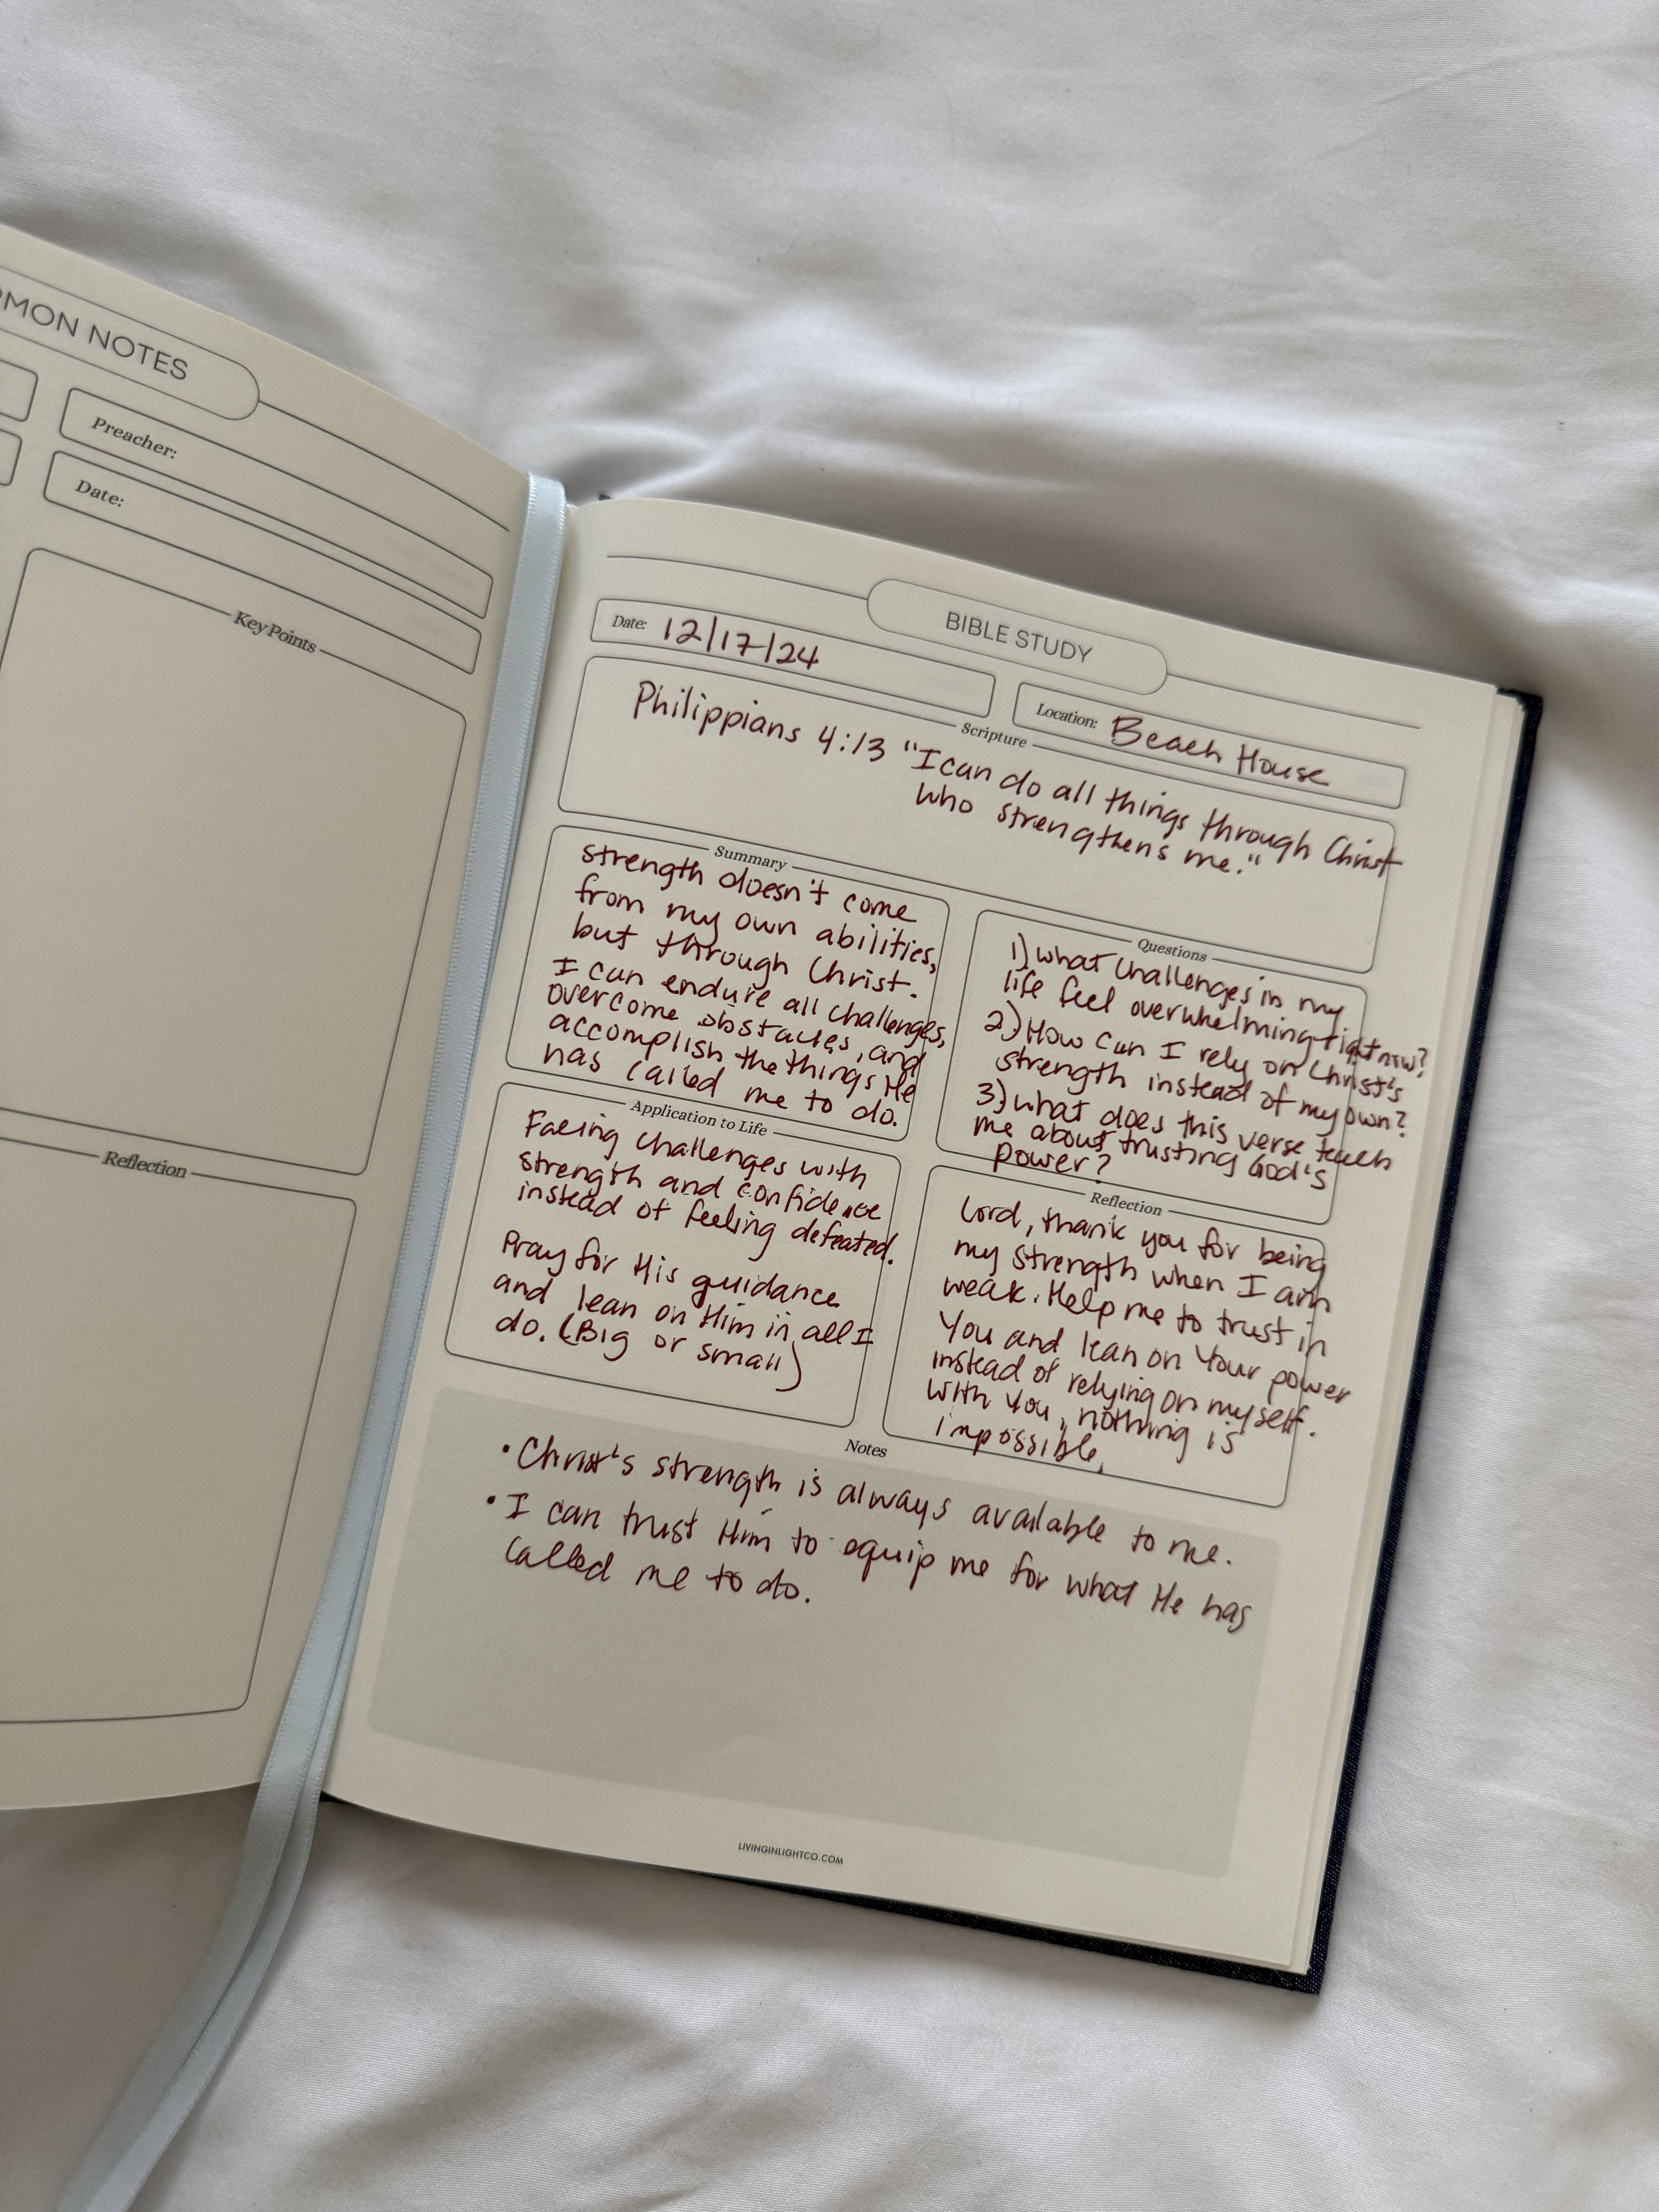 RMON NOTES
Preacher:
Date:
Key Points
Reflection
BIBLE STUDY
Date: 12/17/24
Location: Beach House
Scripture
Philippians 4:13 "I can do all things through Christ
who strengthens me."
Summary
strength doesn't come
from my own abilities,
but through Christ.
I can endure all challenges,
overcome obstacles, and
accomplish the things He
has called me to do.
Questions
1) What challenges in my
life feel overwhelming right now?
2) How can I rely on Christ's
strength instead of my own?
3) What does this verse teach
me about trusting God's
power?
Application to Life
Facing challenges with
strength and confidence
instead of feeling defeated.
Pray for His guidance
and lean on Him in all I
do. (Big or small)
Reflection
Lord, thank you for being
my strength when I am
weak. Help me to trust in
You and lean on Your power
instead of relying on myself.
With You, nothing is
impossible.
Notes
• Christ's strength is always available to me.
• I can trust Him to equip me for what He has
called me to do.
LIVINGINLIGHTCO.COM